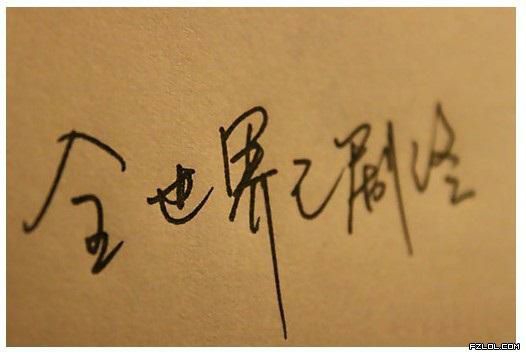 全世界已剧终
FZLOL.COM